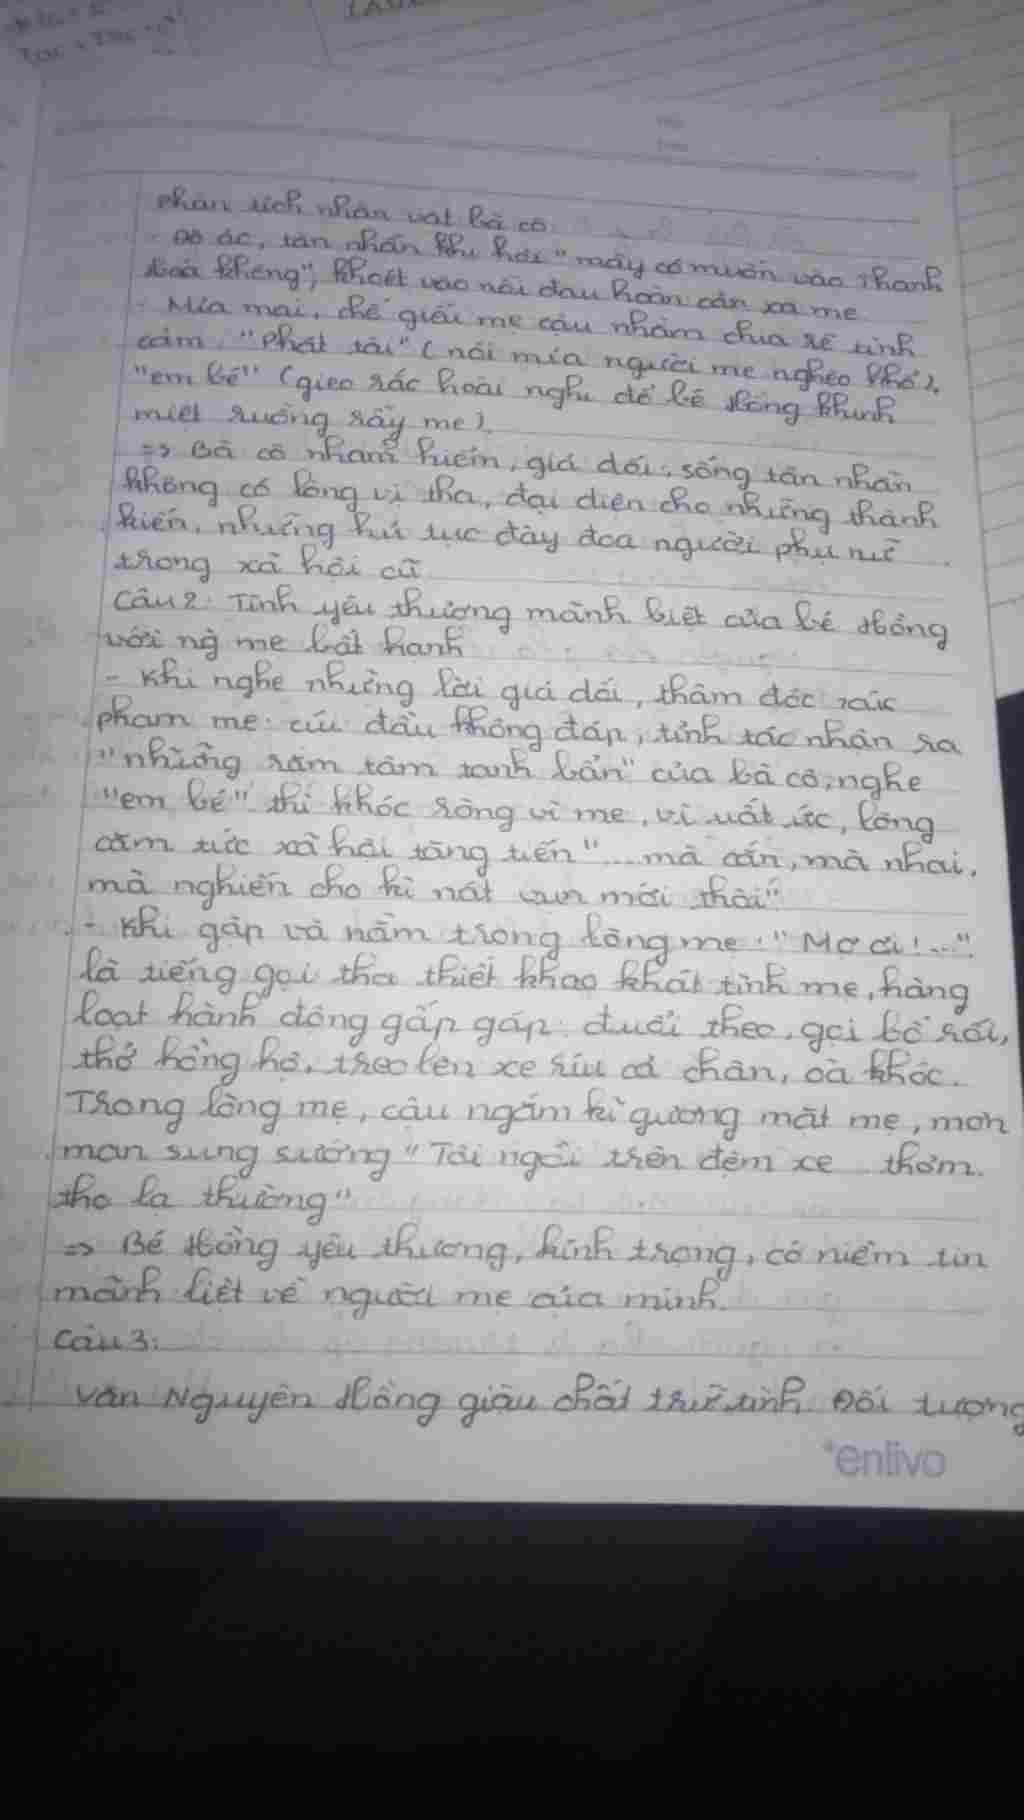 phân tích nhân vật bà cô
- Độ ác, tàn nhẫn khi hỏi "mày có muốn vào Thanh
Hoá không", khoét vào nỗi đau hoàn cản xa mẹ
- Mỉa mai, chế giễu mẹ cậu nhằm chia rẽ tình
cảm. "Phát tài" (nói mỉa người mẹ nghèo khổ),
"em bé" (gieo rắc hoài nghi để bé Hồng khinh
miệt ruồng rẫy mẹ).
=> Bà cô nham hiểm, giả dối, sống tàn nhẫn
không có lòng vị tha, đại diện cho những thành
kiến, những hủ tục đày đoạ người phụ nữ
trong xã hội cũ
Câu 2: Tình yêu thương mãnh liệt của bé Hồng
với ng mẹ bất hạnh
- Khi nghe những lời giả dối, thâm độc xúc
phạm mẹ: cúi đầu không đáp, tỉnh táo nhận ra
"những rắm tâm tanh bẩn" của bà cô, nghe
"em bé" thì khóc ròng vì mẹ, vì uất ức, lòng
căm tức xã hội tăng tiến "...mà cắn, mà nhai,
mà nghiến cho kì nát vụn mới thôi"
- Khi gặp và nằm trong lòng mẹ: "Mợ ơi!..."
là tiếng gọi tha thiết khao khát tình mẹ, hàng
loạt hành động gấp gáp: đuổi theo, gọi bối rối,
thở hồng hộ, trèo lên xe ríu cả chân, oà khóc.
Trong lòng mẹ, cậu ngắm kĩ gương mặt mẹ, mơn
man sung sướng "Tôi ngồi trên đệm xe thơm
tho lạ thường"
=> Bé Hồng yêu thương, kính trọng, có niềm tin
mãnh liệt về người mẹ của mình.
Câu 3:
Văn Nguyên Hồng giàu chất trữ tình. Đối tượng
enlivo